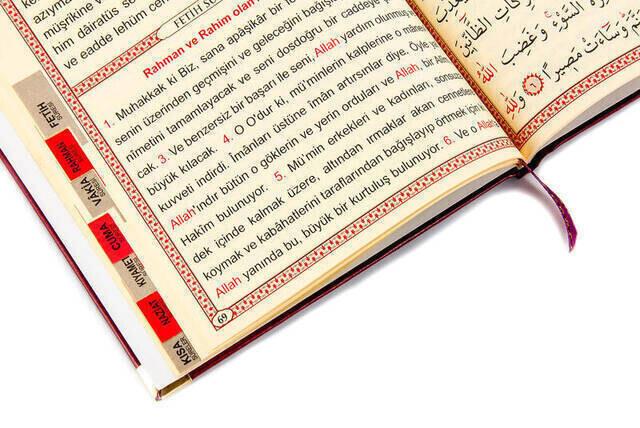 azıyme
müşrikl
him dâiratüs
ve eadde lehüm cehen
FETİH SÛ
Rahman ve Rahim olan
1. Muhakkak ki Biz, sana apâşikâr bir
senin üzerinden geçmişini ve geleceğini bağışla
nimetini tamamlayacak ve seni dosdoğru bir caddeye
cak. 3. Ve benzersiz bir başarı ile seni, Allah yardım olunmuş
büyük kılacak. 4. O O'dur ki, mü'minlerin kalplerine o mâne
kuvveti indirdi. İmânları üstüne îmân artırsınlar diye. Öyle y
Allah'indir bütün o göklerin ve yerin orduları ve Allah, bir Alîm
Hakîm bulunuyor. 5. Mü'min erkekleri ve kadınları, sonsuz
dek içinde kalmak üzere, altından ırmaklar akan cennetler
koymak ve kabâhatlerini taraflarından bağışlayıp örtmek için
Allah yanında bu, büyük bir kurtuluş bulunuyor. 6. Ve o Allah
69
FETİH SÛRESİ
RAHMAN
VÂKIA SÛRESİ
CUMA
KIYAMET
NAZİAT
KISA SÛRELER
السَّوْءِ وَغَضِبَ اللّٰهُ
وَسَاءَتْ مَصِيرًا ﴿٦﴾ وَلِلّٰهِ